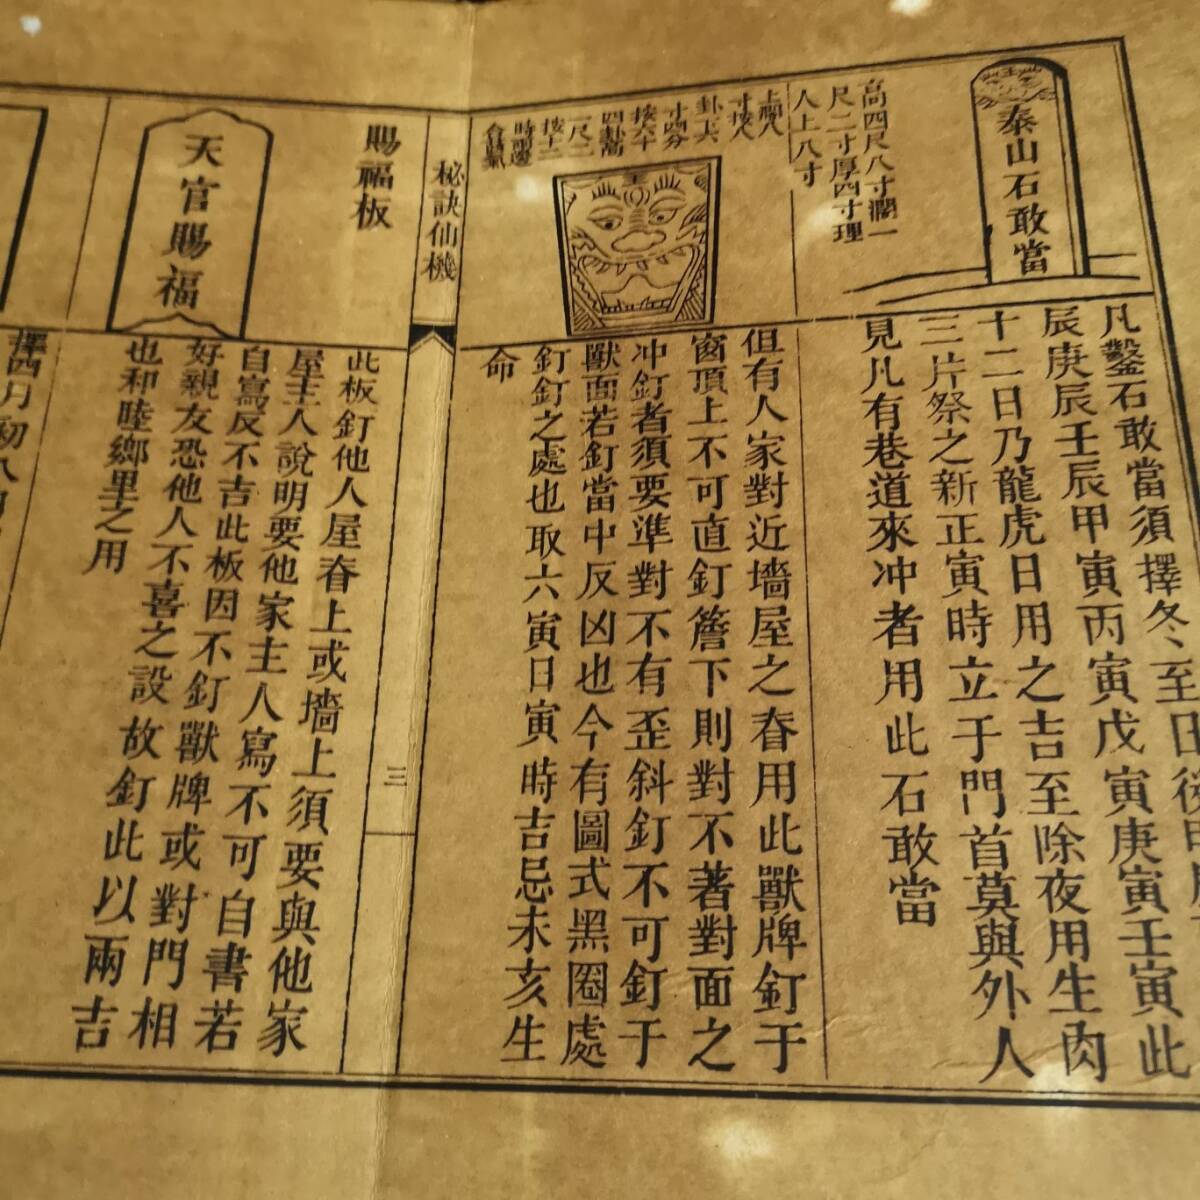 泰山石敢當
高四尺八寸濶一
尺二寸厚四寸理
人土八寸
凡鑿石敢當須擇冬至日後甲辰
辰庚辰壬辰甲寅丙寅戊寅庚寅壬寅此
十二日乃龍虎日用之吉至除夜用生肉
三片祭之新正寅時立于門首莫與外人
見凡有巷道來冲者用此石敢當
上濶八
寸按八
卦下六
寸四分
按六十
四卦高
一尺二
按十二
時兩邊
但有人家對近墻屋之脊用此獸牌釘于
窗頂上不可直釘簷下則對不著對面之
冲釘者須要準對不有歪斜釘不可釘于
獸面若釘當中反凶也今有圖式黑圈處
釘釘之處也取六寅日寅時吉忌未亥生
命
秘訣仙機
三
賜福板
天官賜福
此板釘他人屋脊上或墻上須要與他家
屋主人說明要他家主人寫不可自書若
自寫反不吉此板因不釘獸牌或對門相
好親友恐他人不喜之設故釘此以兩吉
也和睦鄉里之用
擇四月初八日